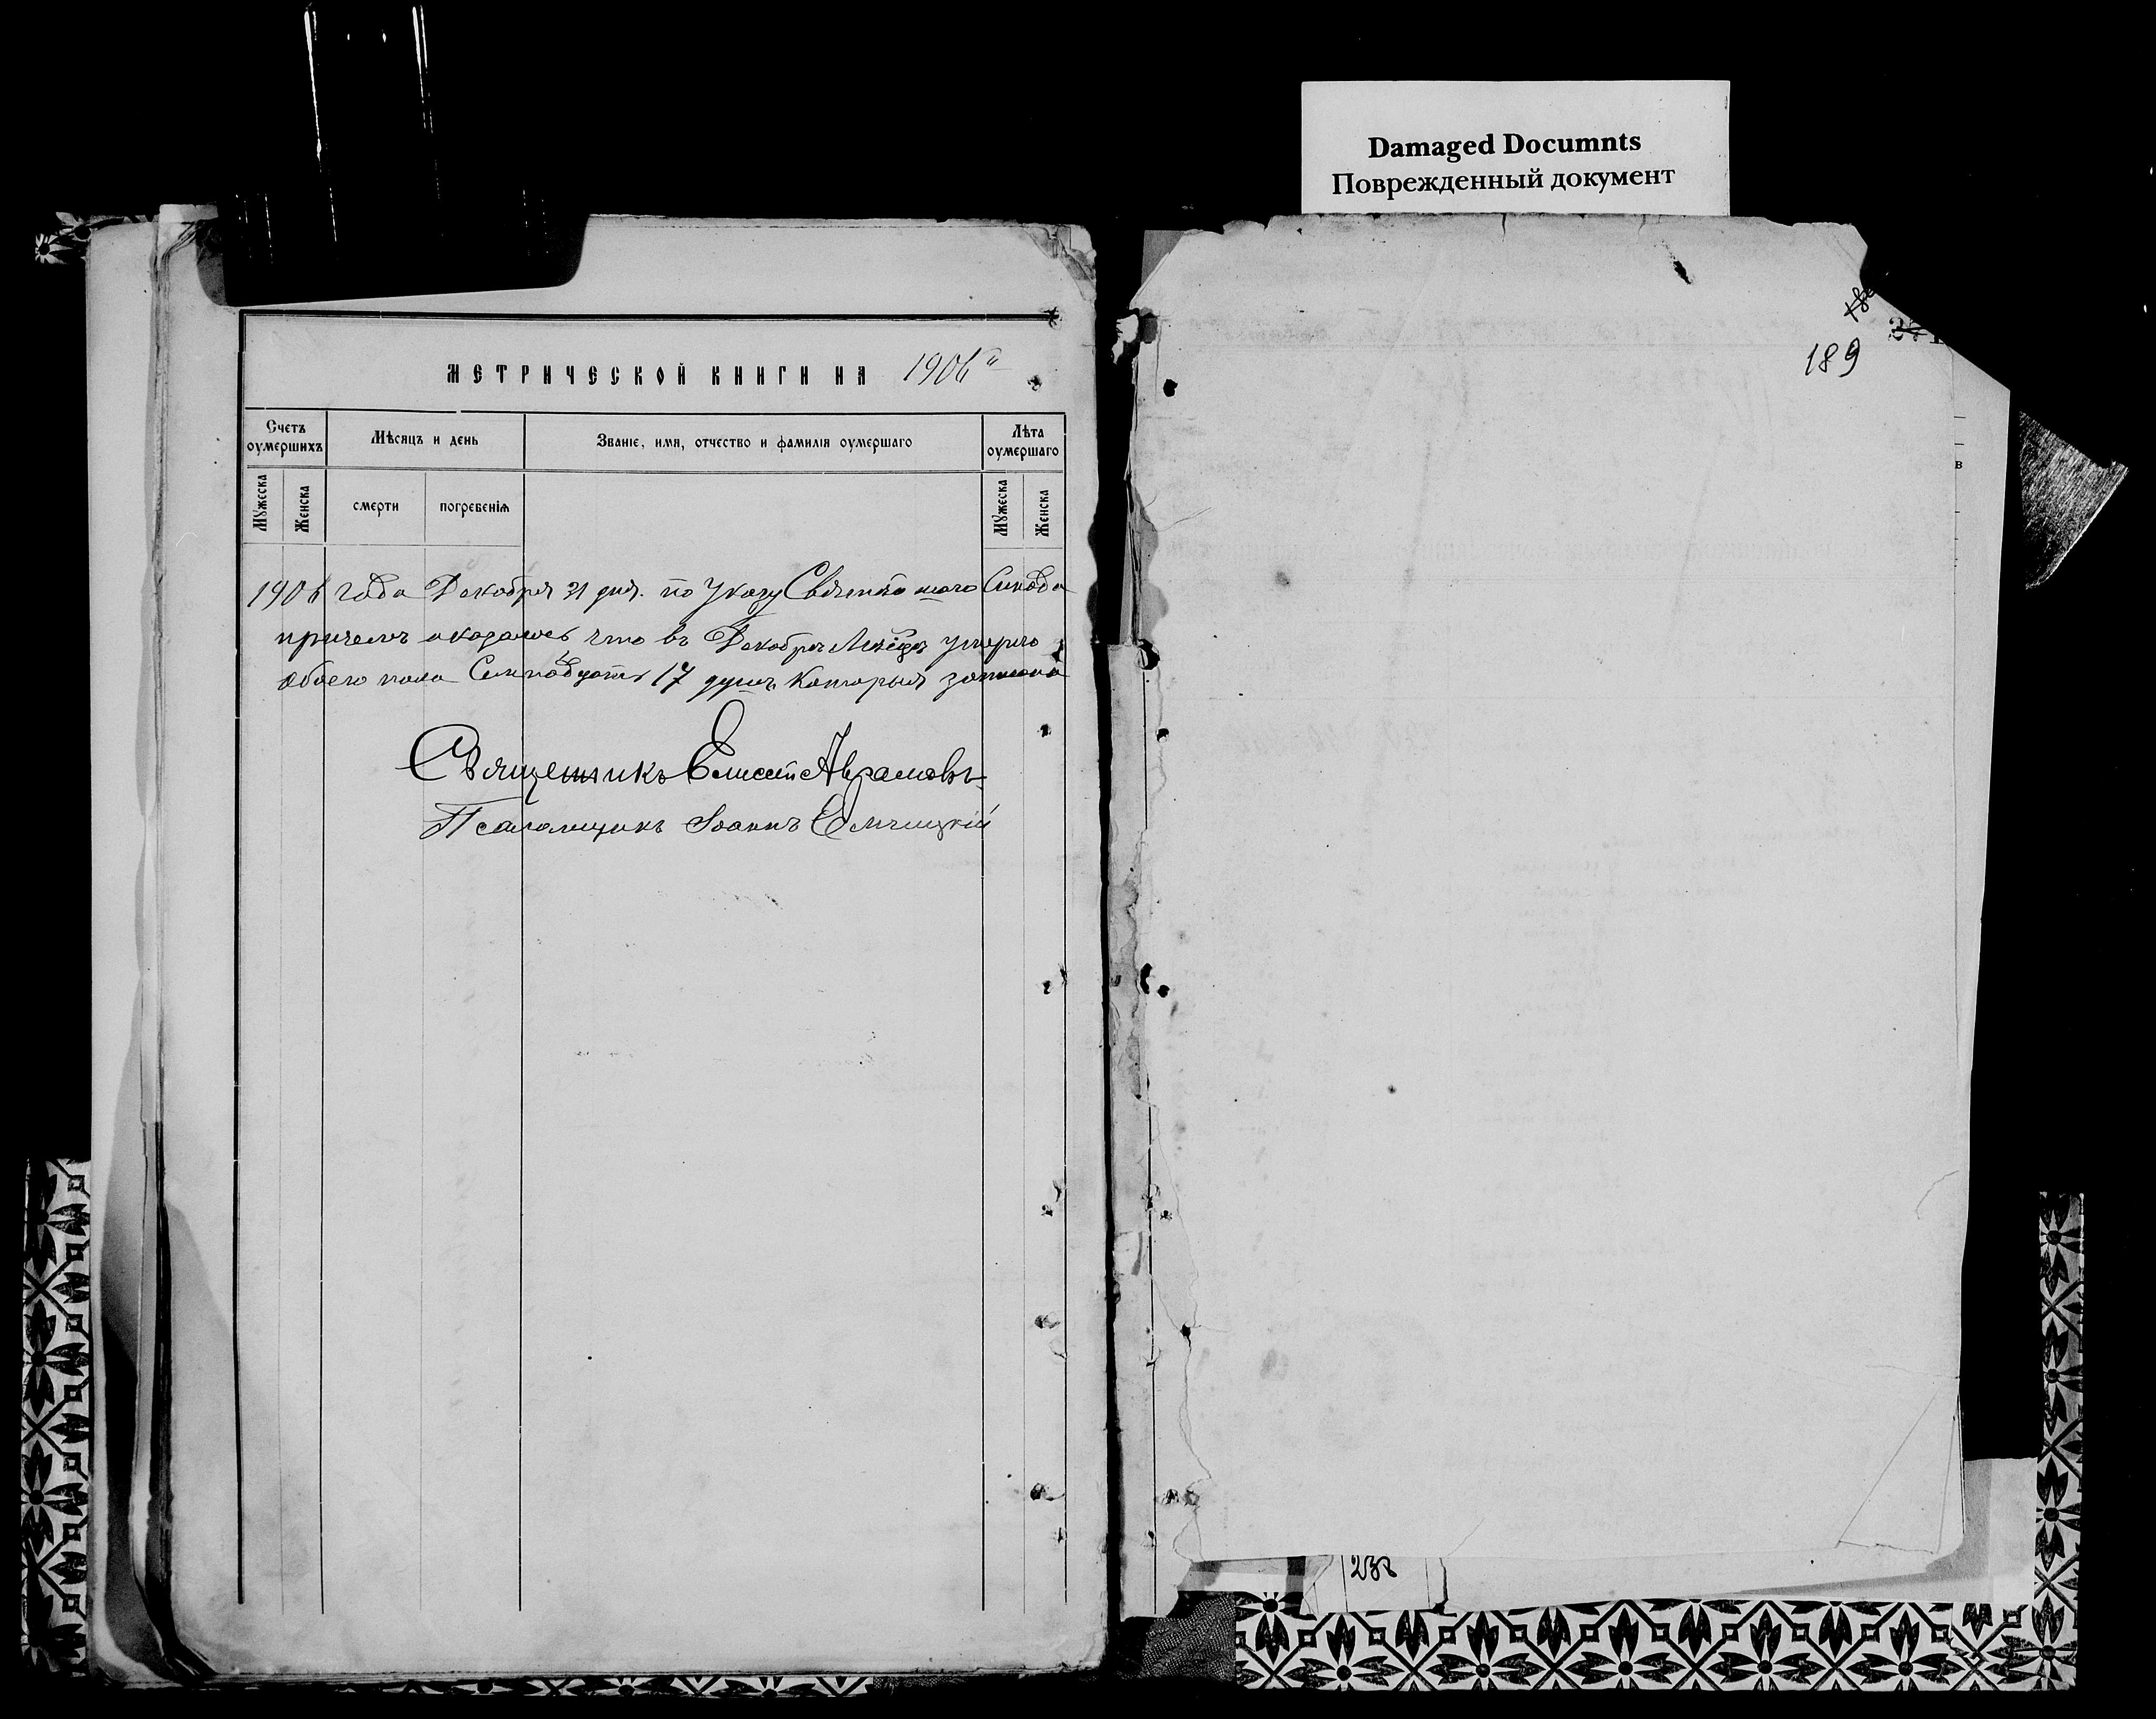 Damaged Documnts
Поврежденный документ
МЕТРИЧЕСКОЙ КНИГИ НА 1906 й
Счетъ оумершихъ
Мѣсяцъ и день
Званіе, имя, отчество и фамилія оумершаго
Лѣта оумершаго
Мужеска
Женска
смерти
погребенія
Мужеска
Женска
1906 года Декабря 31 дня. по Указу Синода
причемъ оказалось что въ Декабрѣ умерло
обоего пола Семнадцать 17 душъ которыя
Священникъ Елисей Аврамовъ
Псаломщикъ Іоаннъ
189
в